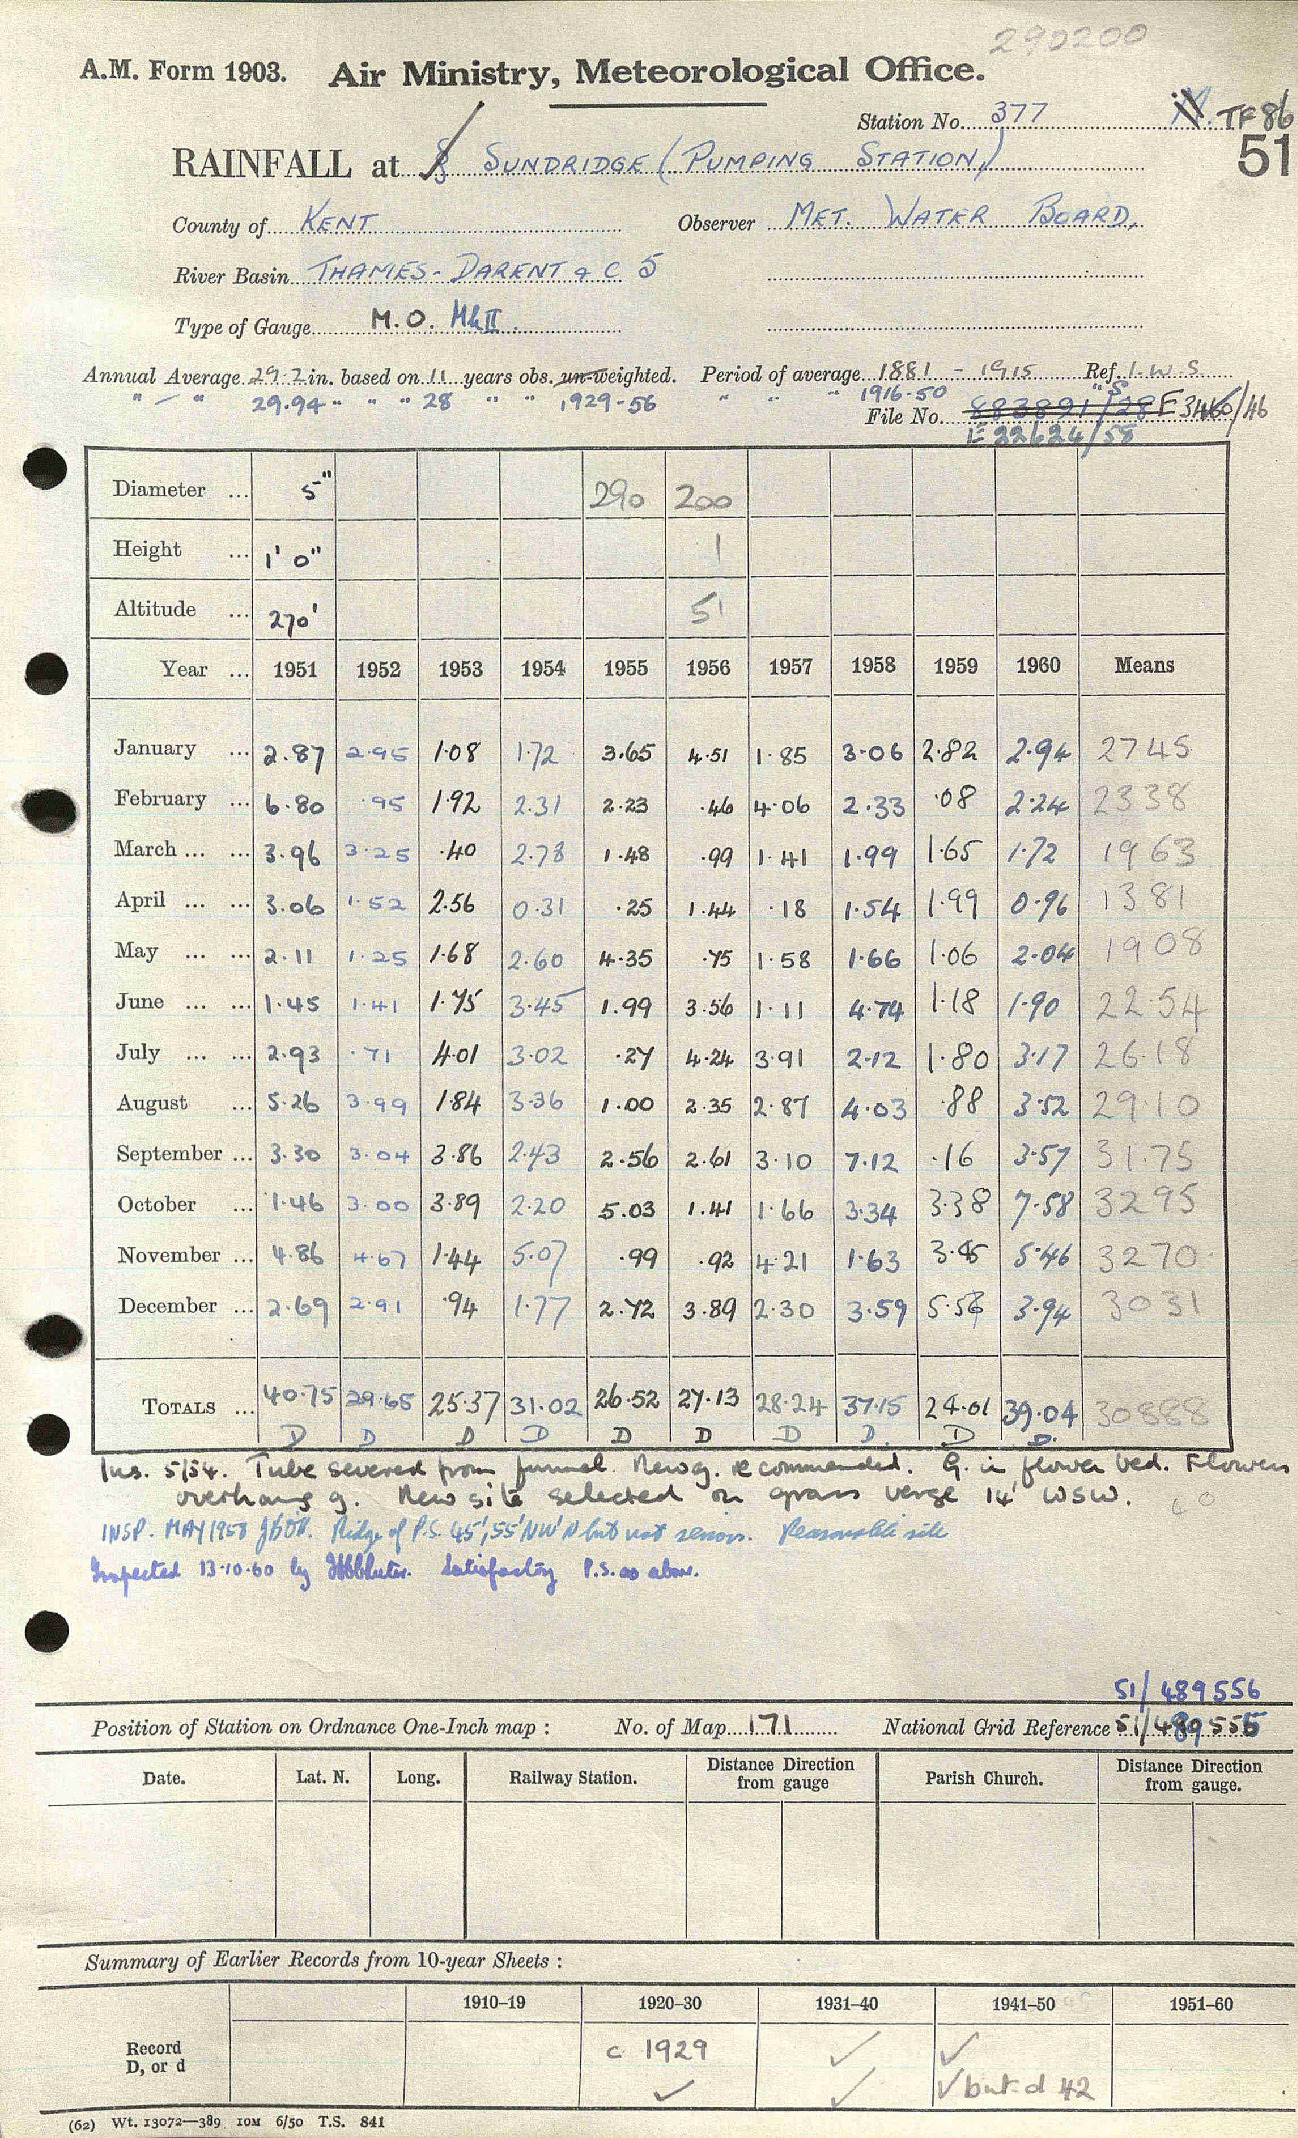 290200
A.M. Form 1903. Air Ministry, Meteorological Office.
Station No. 377 TF 86
51
RAINFALL at SUNDRIDGE (PUMPING STATION)
County of KENT Observer MET. WATER BOARD.
River Basin THAMES - DARENT & C 5
Type of Gauge M.O. Mk II
Annual Average 29.2 in. based on 11 years obs. un-weighted. Period of average 1881 - 1915 Ref. I.W.S
" - " 29.94 " " " 28 " " 1929-56 " " " 1916-50 " S
File No. 883891/28 E 3460/46
E 22624/58
Diameter ... 5" 290 200
Height ... 1' 0" 1
Altitude ... 270' 51
Year ... 1951 1952 1953 1954 1955 1956 1957 1958 1959 1960 Means
January ... 2.87 2.95 1.08 1.72 3.65 4.51 1.85 3.06 2.82 2.94 2745
February ... 6.80 .95 1.92 2.31 2.23 .46 4.06 2.33 .08 2.24 2338
March ... ... 3.96 3.25 .40 2.78 1.48 .99 1.41 1.99 1.65 1.72 1963
April ... ... 3.06 1.52 2.56 0.31 .25 1.44 .18 1.54 1.99 0.96 1381
May ... ... 2.11 1.25 1.68 2.60 4.35 .75 1.58 1.66 1.06 2.04 1908
June ... ... 1.45 1.41 1.75 3.45 1.99 3.56 1.11 4.74 1.18 1.90 2254
July ... ... 2.93 .71 4.01 3.02 .27 4.24 3.91 2.12 1.80 3.17 2618
August ... 5.26 3.99 1.84 3.36 1.00 2.35 2.87 4.03 .88 3.52 2910
September ... 3.30 3.04 3.86 2.43 2.56 2.61 3.10 7.12 .16 3.57 3175
October ... 1.46 3.00 3.89 2.20 5.03 1.41 1.66 3.34 3.38 7.58 3295
November ... 4.86 4.67 1.44 5.07 .99 .92 4.21 1.63 3.45 5.46 3270
December ... 2.69 2.91 .94 1.77 2.72 3.89 2.30 3.59 5.56 3.94 3031
TOTALS ... 40.75 29.65 25.37 31.02 26.52 27.13 28.24 37.15 24.01 39.04 30888
D D D D D D D D D D
Ins. 5/54. Tube severed from funnel. New g. recommended. G. in flower bed. Flowers
overhang g. New site selected on grass verge 14' WSW.
INSP. MAY 1958 Ridge of P.S. 45', 55' NW'N but not serious. Reasonable site
Inspected 13.10.60 by Satisfactory P.S. as above.
51/489556
Position of Station on Ordnance One-Inch map : No. of Map 171 National Grid Reference 51/489555
Date. Lat. N. Long. Railway Station. Distance Direction from gauge Parish Church. Distance Direction from gauge.
Summary of Earlier Records from 10-year Sheets :
1910–19 1920–30 1931–40 1941–50 1951–60
Record
D, or d
c 1929 ✓ ✓
✓ ✓ ✓ but d 42
(62) Wt. 13072—389 10M 6/50 T.S. 841